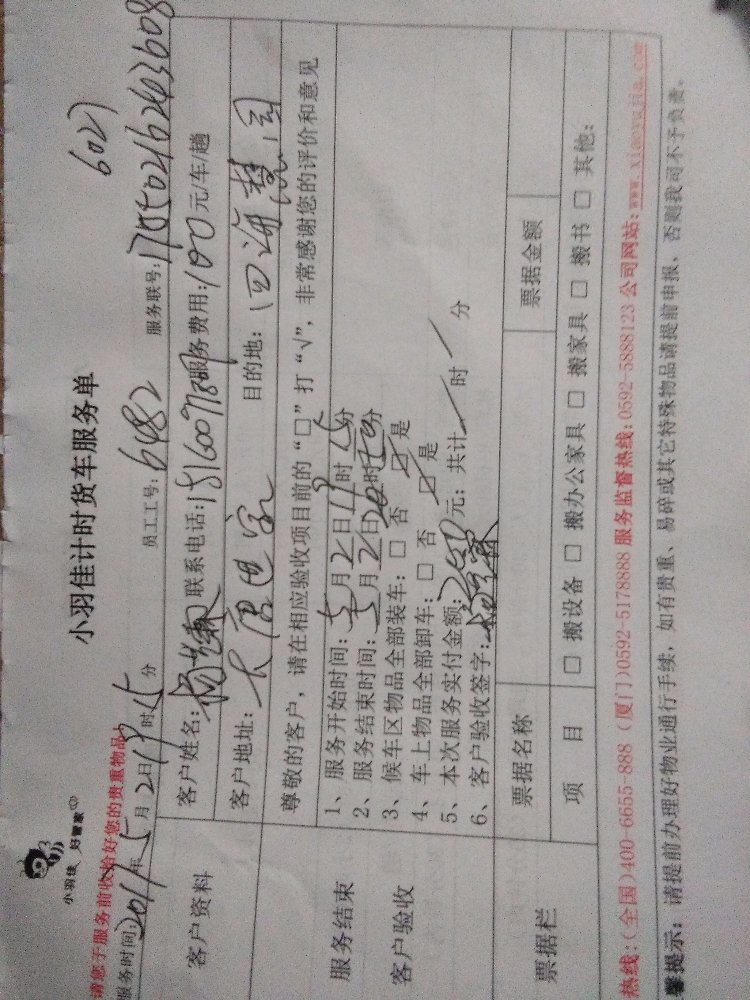 6027
小羽佳计时货车服务单
小羽佳 好管家
请您于服务前收拾好您的贵重物品!
服务时间: 2017年5月2日19时15分 员工工号: 6482 服务联号: 17050216243608
客户资料
客户姓名: 联系电话: 服务费用: 100元/车/趟
客户地址: 大唐世家 目的地: 四海慧园
服务结束
客户验收
尊敬的客户，请在相应验收项目前的“□”打“√”，非常感谢您的评价和意见
1、服务开始时间: 5月2日19时15分
2、服务结束时间: 5月2日20时 分
3、候车区物品全部装车: □ 否 □ 是
4、车上物品全部卸车: □ 否 □ 是
5、本次服务实付金额: 元; 共计 / 时 / 分
6、客户验收签字:
票据栏
票据名称 票据金额
项 目 □ 搬设备 □ 搬办公家具 □ 搬家具 □ 搬书 □ 其他:
热线: (全国)400-6655-888 (厦门)0592-5178888 服务监督热线: 0592-5888123 公司网站: www.xiaoyujia.com
馨提示: 请提前办理好物业通行手续，如有贵重、易碎或其它特殊物品请提前申报，否则我司不予负责。